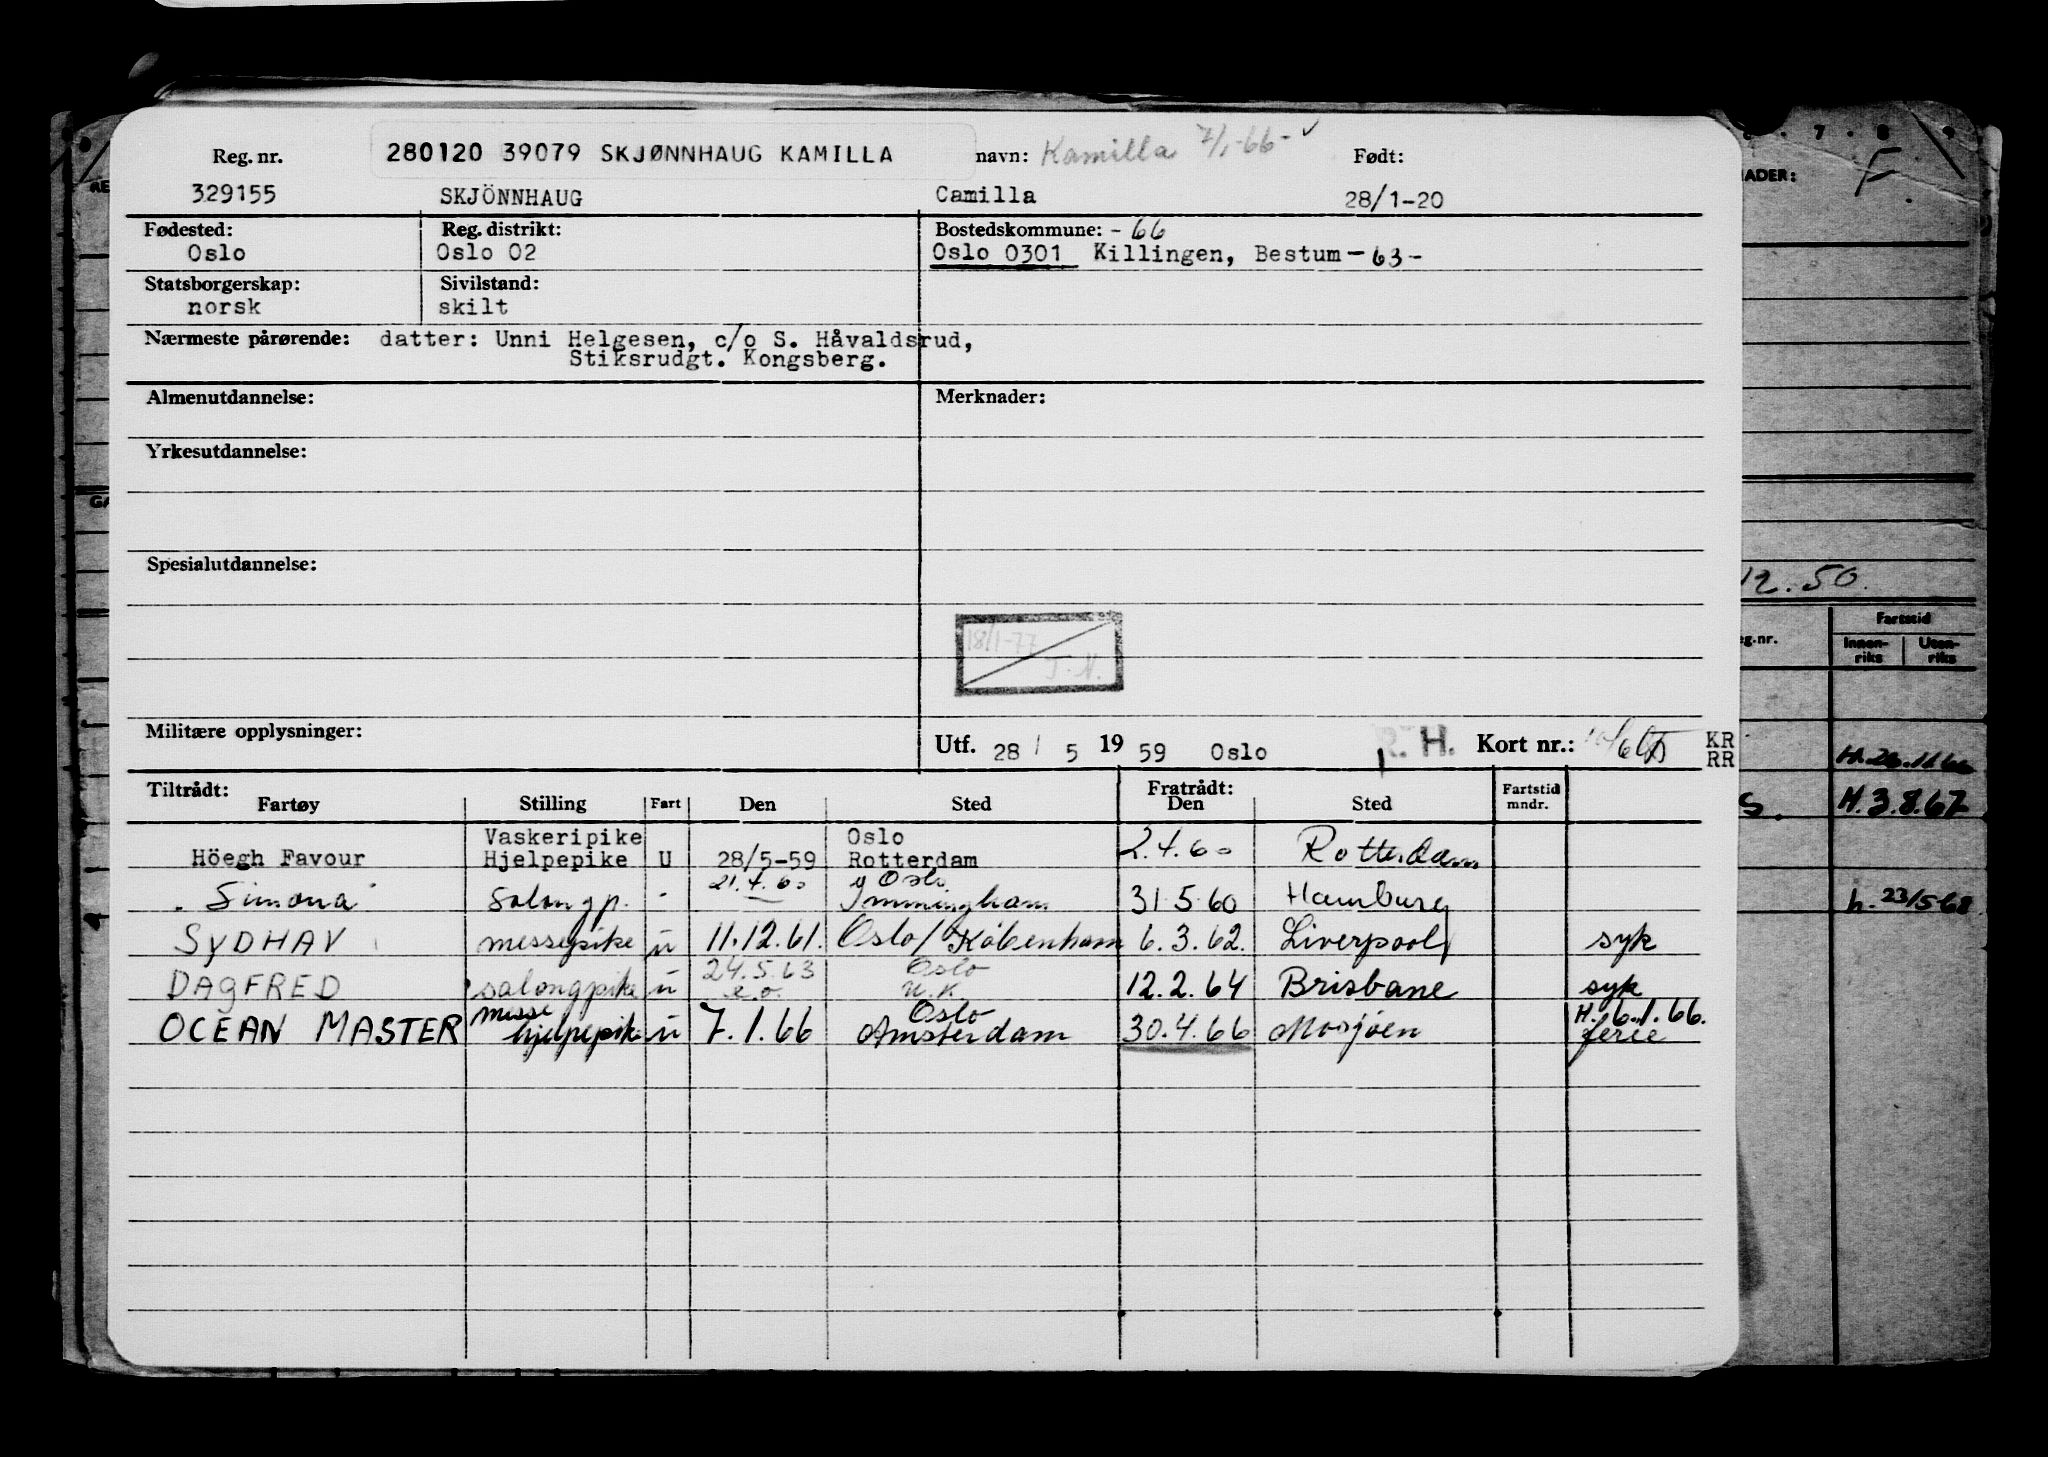 Reg. nr. 280120 39079 SKJØNNHAUG KAMILLA navn: Kamilla 7/1-66- ✓ Født:
329155 SKJÖNNHAUG Camilla 28/1-20
Fødested: Reg. distrikt: Bostedskommune: -66
Oslo Oslo 02 Oslo 0301 Killingen, Bestum -63-
Statsborgerskap: Sivilstand:
norsk skilt
Nærmeste pårørende: datter: Unni Helgesen, c/o S. Håvaldsrud,
Stiksrudgt. Kongsberg.
Almenutdannelse: Merknader:
Yrkesutdannelse:
Spesialutdannelse:
18/1-77
J.N.
Militære opplysninger: Utf. 28/5 1959 Oslo R. H. Kort nr.: KR
RR
Tiltrådt: Fratrådt:
Fartøy Stilling Fart Den Sted Den Sted Fartstid
mndr.
Vaskeripike Oslo
Höegh Favour Hjelpepike U 28/5-59 Rotterdam 2.4.60 Rotterdam
21.4.60 Oslo
"Simona" Salongp. - Immingham 31.5.60 Hamburg
SYDHAV messepike u 11.12.61. Oslo/København 6.3.62. Liverpool syk
24.5.63 Oslo
DAGFRED salongpike u e.o. N.K. 12.2.64 Brisbane syk
messe Oslo H. 6.1.66.
OCEAN MASTER hjelpepike u 7.1.66 Amsterdam 30.4.66 Mosjøen ferie
6 7 8 9
ADER: F
12.50.
Fartstid
eg.nr. Innen-riks Uten-riks
S. H.3.8.67
h. 23/5-68